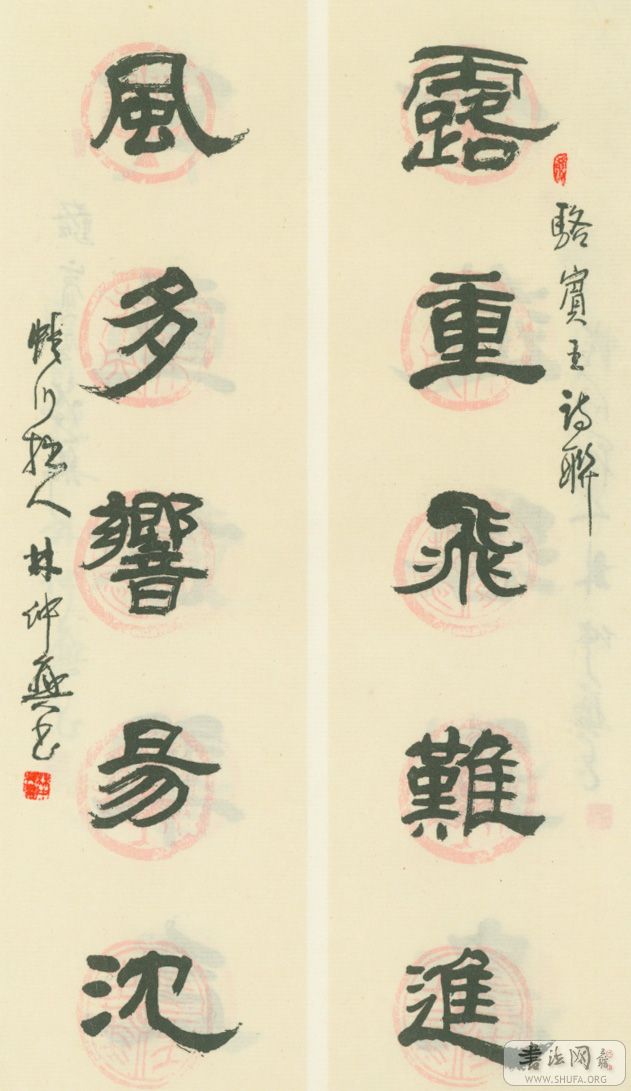 露重飛難進
駱賓王詩聯
風多響易沈
拙人林仲興書
書法网
WWW.SHUFA.ORG